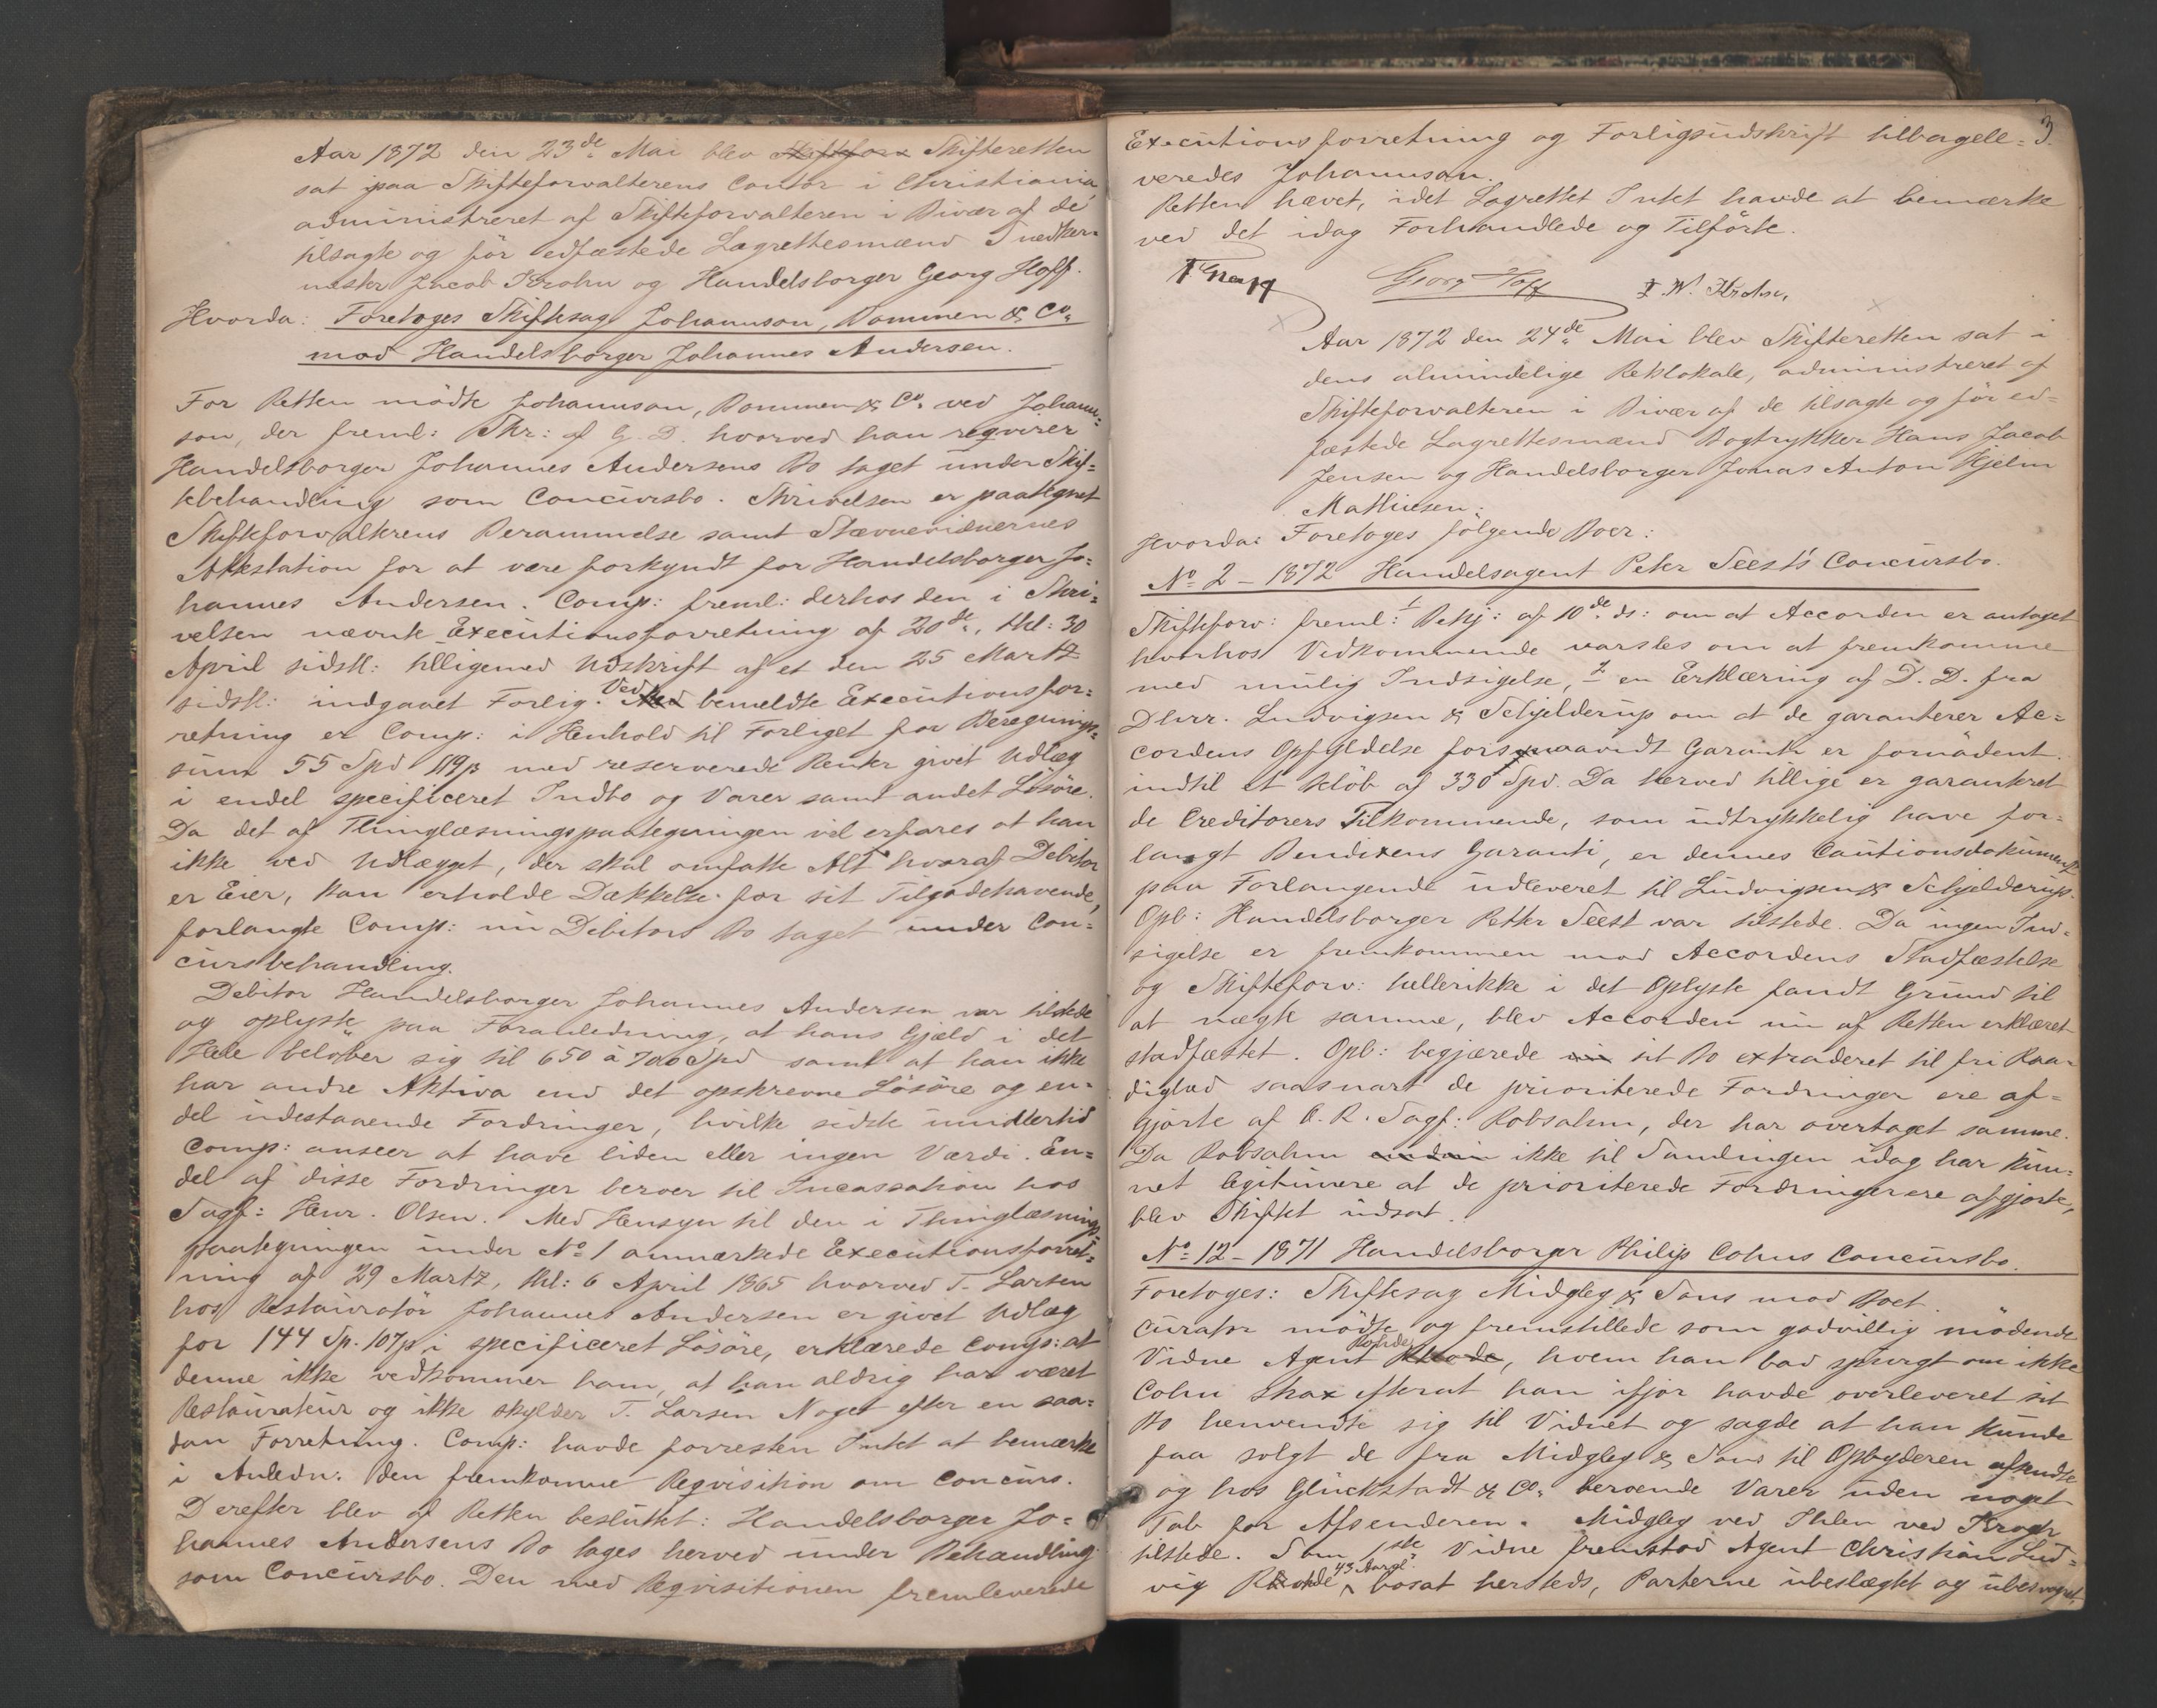 Aar 1872 den 23de Mai blev Skifteforv Skifteretten
sat paa Skifteforvalterens Contor i Christiania,
administreret af Skifteforvalteren i Bivær af de
tilsagte og før edfæstede Lagrettesmænd Snedker-
mester Jacob Krohn og Handelsborger Georg Hoff.
Hvorda: Foretoges Skiftesag Johannson, Dommen & Co.
mod Handelsborger Johannes Andersen.
For Retten mödte Johannson, Dommen & Co. ved Johann-
son, der freml: Skr: af G. D. hvorved han reqvirer
Handelsborger Johannes Andersens Bo taget under Skif-
tebehandling som Concursbo. Skrivelsen er paategnet
Skifteforvalterens Berammelse samt Stævnevidnernes
Attestation for at være forkyndt for Handelsborger Jo-
hannes Andersen. Comp: freml: derhos den i Skri-
velsen nævnte Executionsforretning af 20de, thl: 30
April sidstl: tilligemed Udskrift af et den 25 Martz
sidstl: indgaaet Forlig. Ved Med bemeldte Executionsfor-
retning er Comp: i Henhold til Forliget for Beregnings-
sum 55 Spd 119 β med reserverede Renter givet Udlæg
i endel specificeret Indbo og Varer samt andet Lösöre.
Da det af Thinglæsningspaategningen vil erfares at han
ikke ved Udlægget, der skal omfatte Alt hvoraf Debitor
er Eier, kan erholde Dækkelse for sit Tilgodehavende,
forlangte Comp: nu Debitors Bo taget under Con-
cursbehandling.
Debitor Handelsborger Johannes Andersen var tilstede
og oplyste paa Foranledning, at hans Gjæld i det
Hele belöber sig til 650 à 700 Spd samt at han ikke
har andre Aktiva end det opskrevne Lösöre og en-
del udestaaende Fordringer, hvilke sidste imidlertid
Comp: anseer at have liden eller ingen Værdi. En-
del af disse Fordringer beroer til Incassation hos
Sagf: Henr. Olsen. Med Hensyn til den i Thinglæsnings-
paategningen under No 1 anmærkede Executionsforret-
ning af 29 Martz, thl: 6 April 1865 hvorved T. Larsen
hos Restauratör Johannes Andersen er givet Udlæg
for 144 Sp. 107 β i specificeret Lösöre, erklærede Comp: at
denne ikke vedkommer ham, at han aldrig har været
Restaurateur og ikke skylder T. Larsen Noget efter en saa-
dan Forretning. Comp: havde forresten Intet at bemærke
i Anledn. den fremkomne Reqvisition om Concurs.
Derefter blev af Retten besluttet: Handelsborger Jo-
hannes Andersens Bo tages herved under Behandling
som Concursbo. Den med Reqvisitionen fremleverede
3.
Executionsforretning og Forligsudskrift tilbagele-
veredes Johannson.
Retten hævet, idet Lagrettet Intet havde at bemærke
ved det idag Forhandlede og Tilförte.
Georg Hoff J. W. Krohn,
Aar 1872 den 24de Mai blev Skifteretten sat i
dens almindelige Retslokale, administreret af
Skifteforvalteren i Bivær af de tilsagte og för ed-
fæstede Lagrettesmænd Bogtrykker Hans Jacob
Jensen og Handelsborger Jonas Anton Hjelm
Mathiesen.
Hvorda: Foretoges følgende Boer:
No 2 - 1872 Handelsagent Peter Seest's Concursbo.
Skifteforv: freml: 1 Bekj: af 10de ds: om at Accorden er antaget
hvorhos Vedkommende varsles om at fremkomme
med mulig Indsigelse, 2 en Erklæring af D. D. fra
Dhrr. Ludvigsen & Schjelderup om at de garanterer Ac-
cordens Opfyldelse forsaavidt Garanti er fornödent
indtil et Belöb af 330 Spd. Da herved tillige er garanteret
de Creditorers Tilkommende, som udtrykkelig have for-
langt Bendixens Garanti, er dennes Cautionsdokument
paa Forlangende udleveret til Ludvigsen & Schjelderup.
Opb: Handelsborger Petter Seest var tilstede. Da ingen Ind-
sigelse er fremkommen mod Accordens Stadfæstelse
og Skifteforv: hellerikke i det Oplyste fandt Grund til
at nægte samme, blev Accorden nu af Retten erklæret
stadfæstet. Opb: begjærede nu sit Bo extraderet til fri Raa-
dighed saasnart de prioriterede Fordringer ere af-
gjorte af O. R. Sagf: Robsahm, der har overtaget samme.
Da Robsahm ikke til Samlingen idag har kun-
net legitimere at de prioriterede Fordringer ere afgjorte,
blev Skiftet udsat.
No 12 - 1871 Handelsborger Philip Cohns Concursbo.
Foretoges: Skiftesag Midgley & Sons mod Boet.
Curator mödte og fremstillede som godvillig mödende
Vidne Agent Rohde, hvem han bad spurgt om ikke
Cohn strax efterat han ifjor havde overleveret sit
Bo henvendte sig til Vidnet og sagde at han kunde
faa solgt de fra Midgley & Sons til Opbyderen afsendte
og hos Glückstadt & Co. beroende Varer uden noget
Tab for Afsenderen. Midgley ved Ihlen ved Krogh
tilstede. Som 1ste Vidne fremstod Agent Christian Lud-
vig Rohde 43 Aargl: bosat hersteds, Parterne ubeslægtet og ubesvogret,